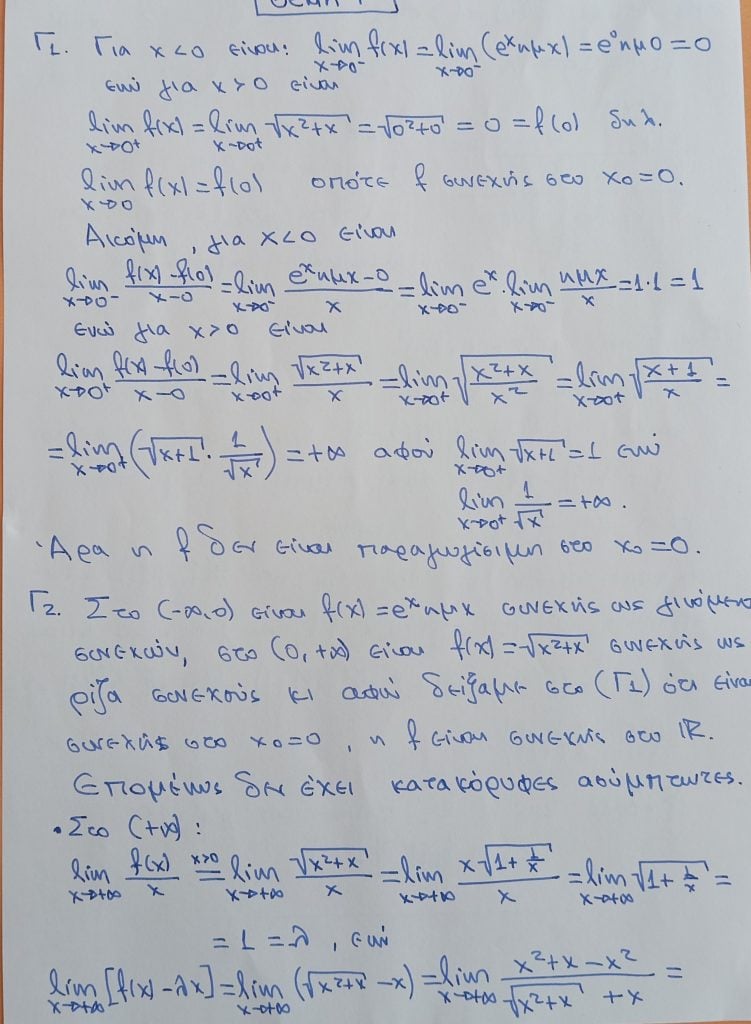 ΘΕΜΑ Γ
Γ1. Για x<0 είναι: lim_{x→0⁻} f(x) = lim_{x→0⁻} (eˣημx) = e⁰ημ0 = 0
ενώ για x>0 είναι
lim_{x→0⁺} f(x) = lim_{x→0⁺} √(x²+x) = √(0²+0) = 0 = f(0) δηλ.
lim_{x→0} f(x) = f(0) οπότε f συνεχής στο x₀=0.
Ακόμη, για x<0 είναι
lim_{x→0⁻} (f(x)-f(0))/(x-0) = lim_{x→0⁻} (eˣημx-0)/x = lim_{x→0⁻} eˣ · lim_{x→0⁻} ημx/x = 1·1 = 1
ενώ για x>0 είναι
lim_{x→0⁺} (f(x)-f(0))/(x-0) = lim_{x→0⁺} √(x²+x)/x = lim_{x→0⁺} √((x²+x)/x²) = lim_{x→0⁺} √((x+1)/x) =
= lim_{x→0⁺} (√(x+1) · 1/√x) = +∞ αφού lim_{x→0⁺} √(x+1) = 1 ενώ
lim_{x→0⁺} 1/√x = +∞.
Άρα η f δεν είναι παραγωγίσιμη στο x₀=0.
Γ2. Στο (-∞,0) είναι f(x) = eˣημx συνεχής ως γινόμενο
συνεχών, στο (0,+∞) είναι f(x) = √(x²+x) συνεχής ως
ρίζα συνεχούς κι αφού δείξαμε στο (Γ1) ότι είναι
συνεχής στο x₀=0, η f είναι συνεχής στο ℝ.
Επομένως δεν έχει κατακόρυφες ασύμπτωτες.
• Στο (+∞):
lim_{x→+∞} f(x)/x =^{x>0} lim_{x→+∞} √(x²+x)/x = lim_{x→+∞} x√(1+1/x)/x = lim_{x→+∞} √(1+1/x) =
= 1 = λ, ενώ
lim_{x→+∞} [f(x)-λx] = lim_{x→+∞} (√(x²+x) -x) = lim_{x→+∞} (x²+x-x²)/(√(x²+x) +x) =